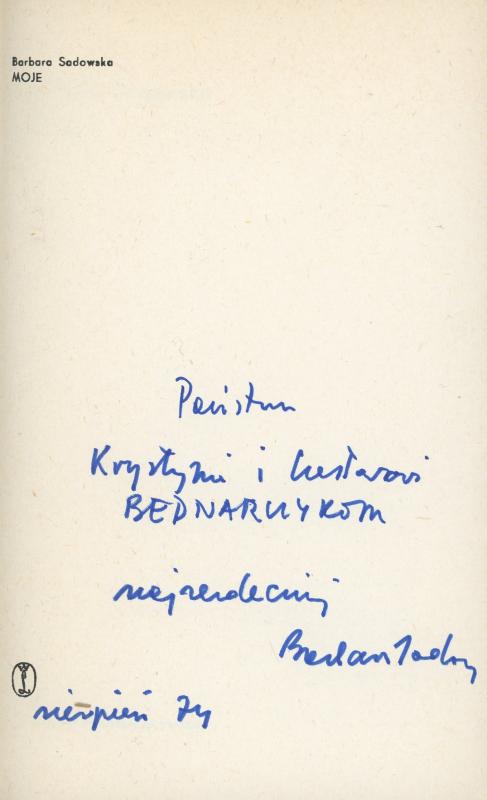 Barbara Sadowska
MOJE
Państwu
Krystynie i Czesławowi
BEDNARCZYKOM
najserdeczniej
Barbara Sadow
sierpień 74